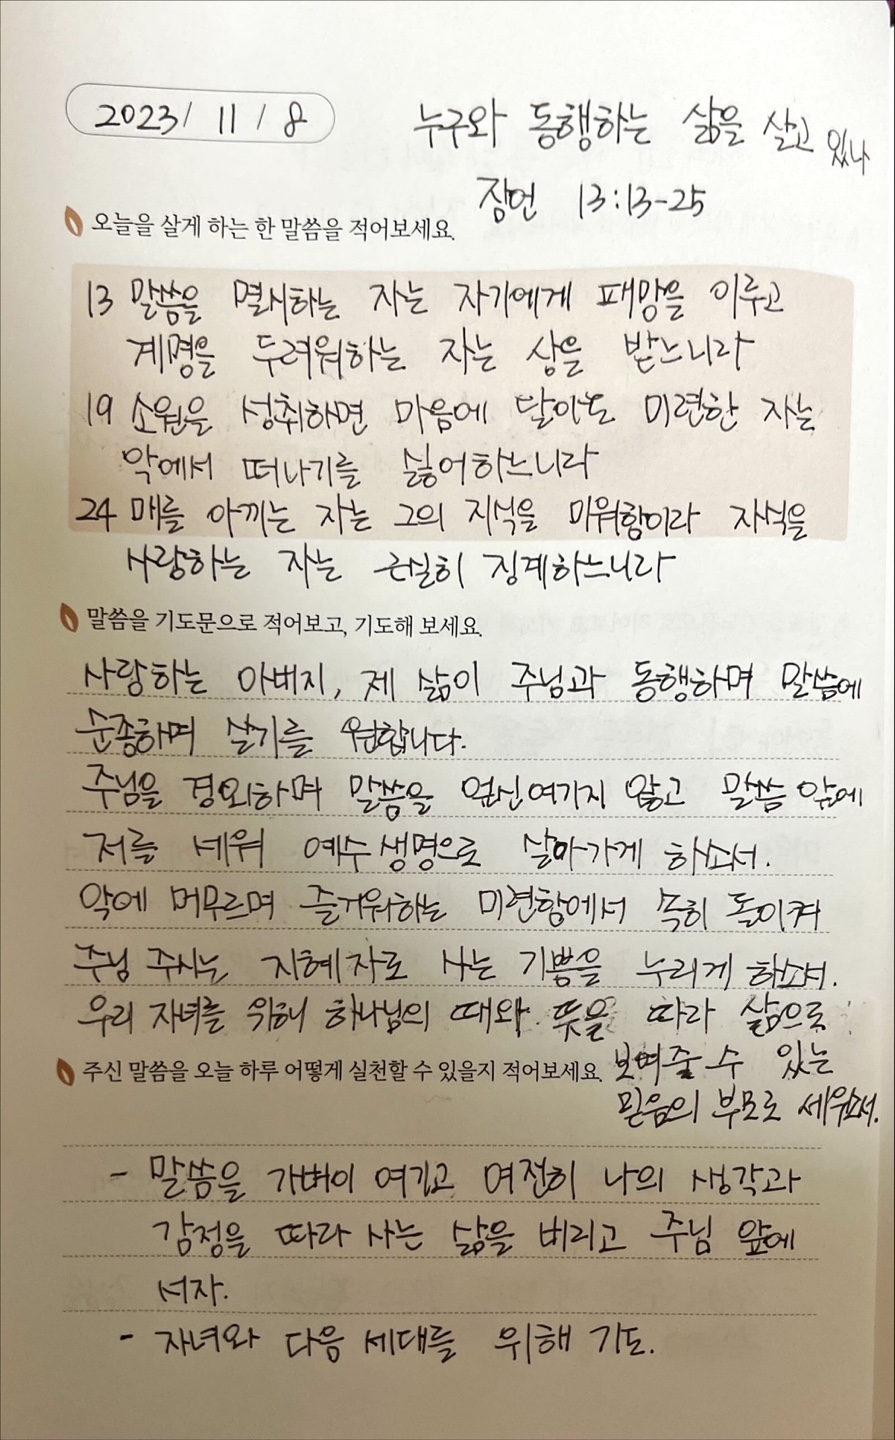 2023/ 11 / 8
누구와 동행하는 삶을 살고 있나
잠언 13:13-25
오늘을 살게 하는 한 말씀을 적어보세요.
13 말씀을 멸시하는 자는 자기에게 패망을 이루고
계명을 두려워하는 자는 상을 받느니라
19 소원을 성취하면 마음에 달아도 미련한 자는
악에서 떠나기를 싫어하느니라
24 매를 아끼는 자는 그의 자식을 미워함이라 자식을
사랑하는 자는 근실히 징계하느니라
말씀을 기도문으로 적어보고, 기도해 보세요.
사랑하는 아버지, 제 삶이 주님과 동행하며 말씀에
순종하며 살기를 원합니다.
주님을 경외하며 말씀을 업신여기지 않고 말씀 앞에
저를 세워 예수생명으로 살아가게 하소서.
악에 머무르며 즐거워하는 미련함에서 속히 돌이켜
주님 주시는 지혜자로 사는 기쁨을 누리게 하소서.
우리 자녀를 위해 하나님의 때와 뜻을 따라 삶으로
보여줄 수 있는
믿음의 부모로 세우소서.
주신 말씀을 오늘 하루 어떻게 실천할 수 있을지 적어보세요.
- 말씀을 가벼이 여기고 여전히 나의 생각과
감정을 따라 사는 삶을 버리고 주님 앞에
서자.
- 자녀와 다음 세대를 위해 기도.